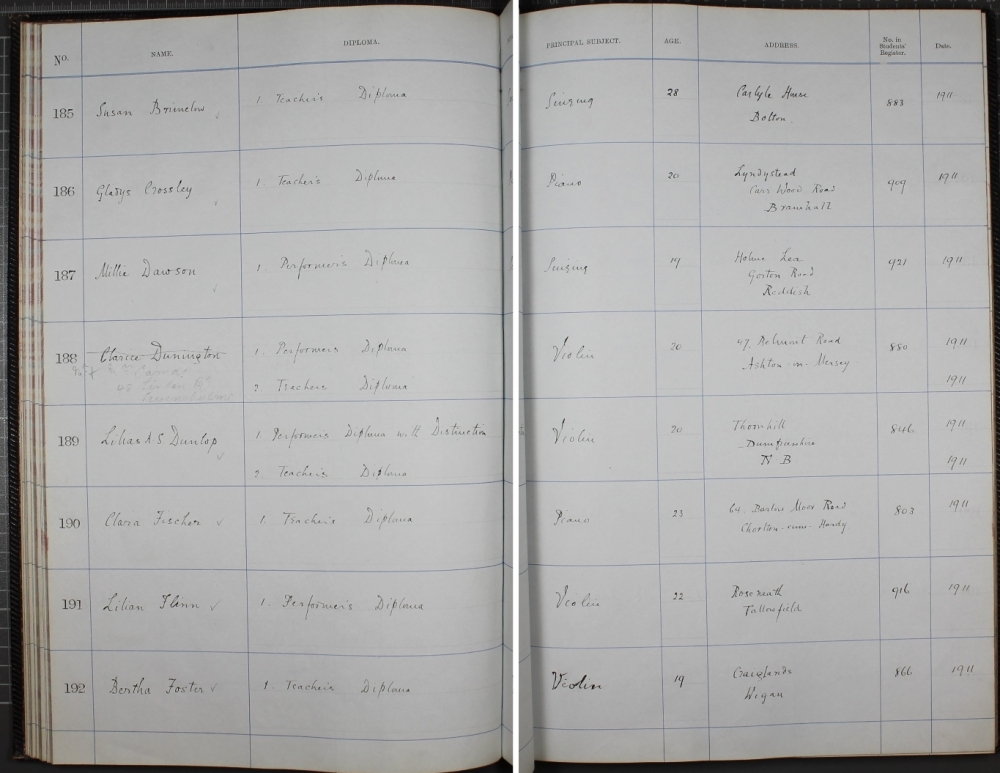 No. NAME. DIPLOMA. PRINCIPAL SUBJECT. AGE. ADDRESS. No. in Students' Register. Date.
185 Susan Brimelow 1. Teacher's Diploma Singing 28 Carlyle House 883 1911
Bolton.
186 Gladys Crossley 1. Teacher's Diploma Piano 20 Lyndystead 909 1911
Carr Wood Road
Bramhall
187 Millie Dawson 1. Performer's Diploma Singing 19 Holme Lea 921 1911
Gorton Road
Reddish
188 Clarice Dunington 1. Performers Diploma Violin 20 47. Belmont Road 880 1911
Ashton-on-Mersey
2. Teachers Diploma 1911
189 Lilias A S Dunlop 1. Performers Diploma with Distinction Violin 20 Thornhill 846 1911
Dumfriesshire
2. Teacher's Diploma N B 1911
190 Clara Fischer 1. Teacher's Diploma Piano 23 64. Barlow Moor Road 803 1911
Chorlton-cum-Hardy
191 Lilian Flinn 1. Performer's Diploma Violin 22 Roseneath 916 1911
Fallowfield
192 Bertha Foster 1. Teacher's Diploma Violin 19 Craiglands 866 1911
Wigan